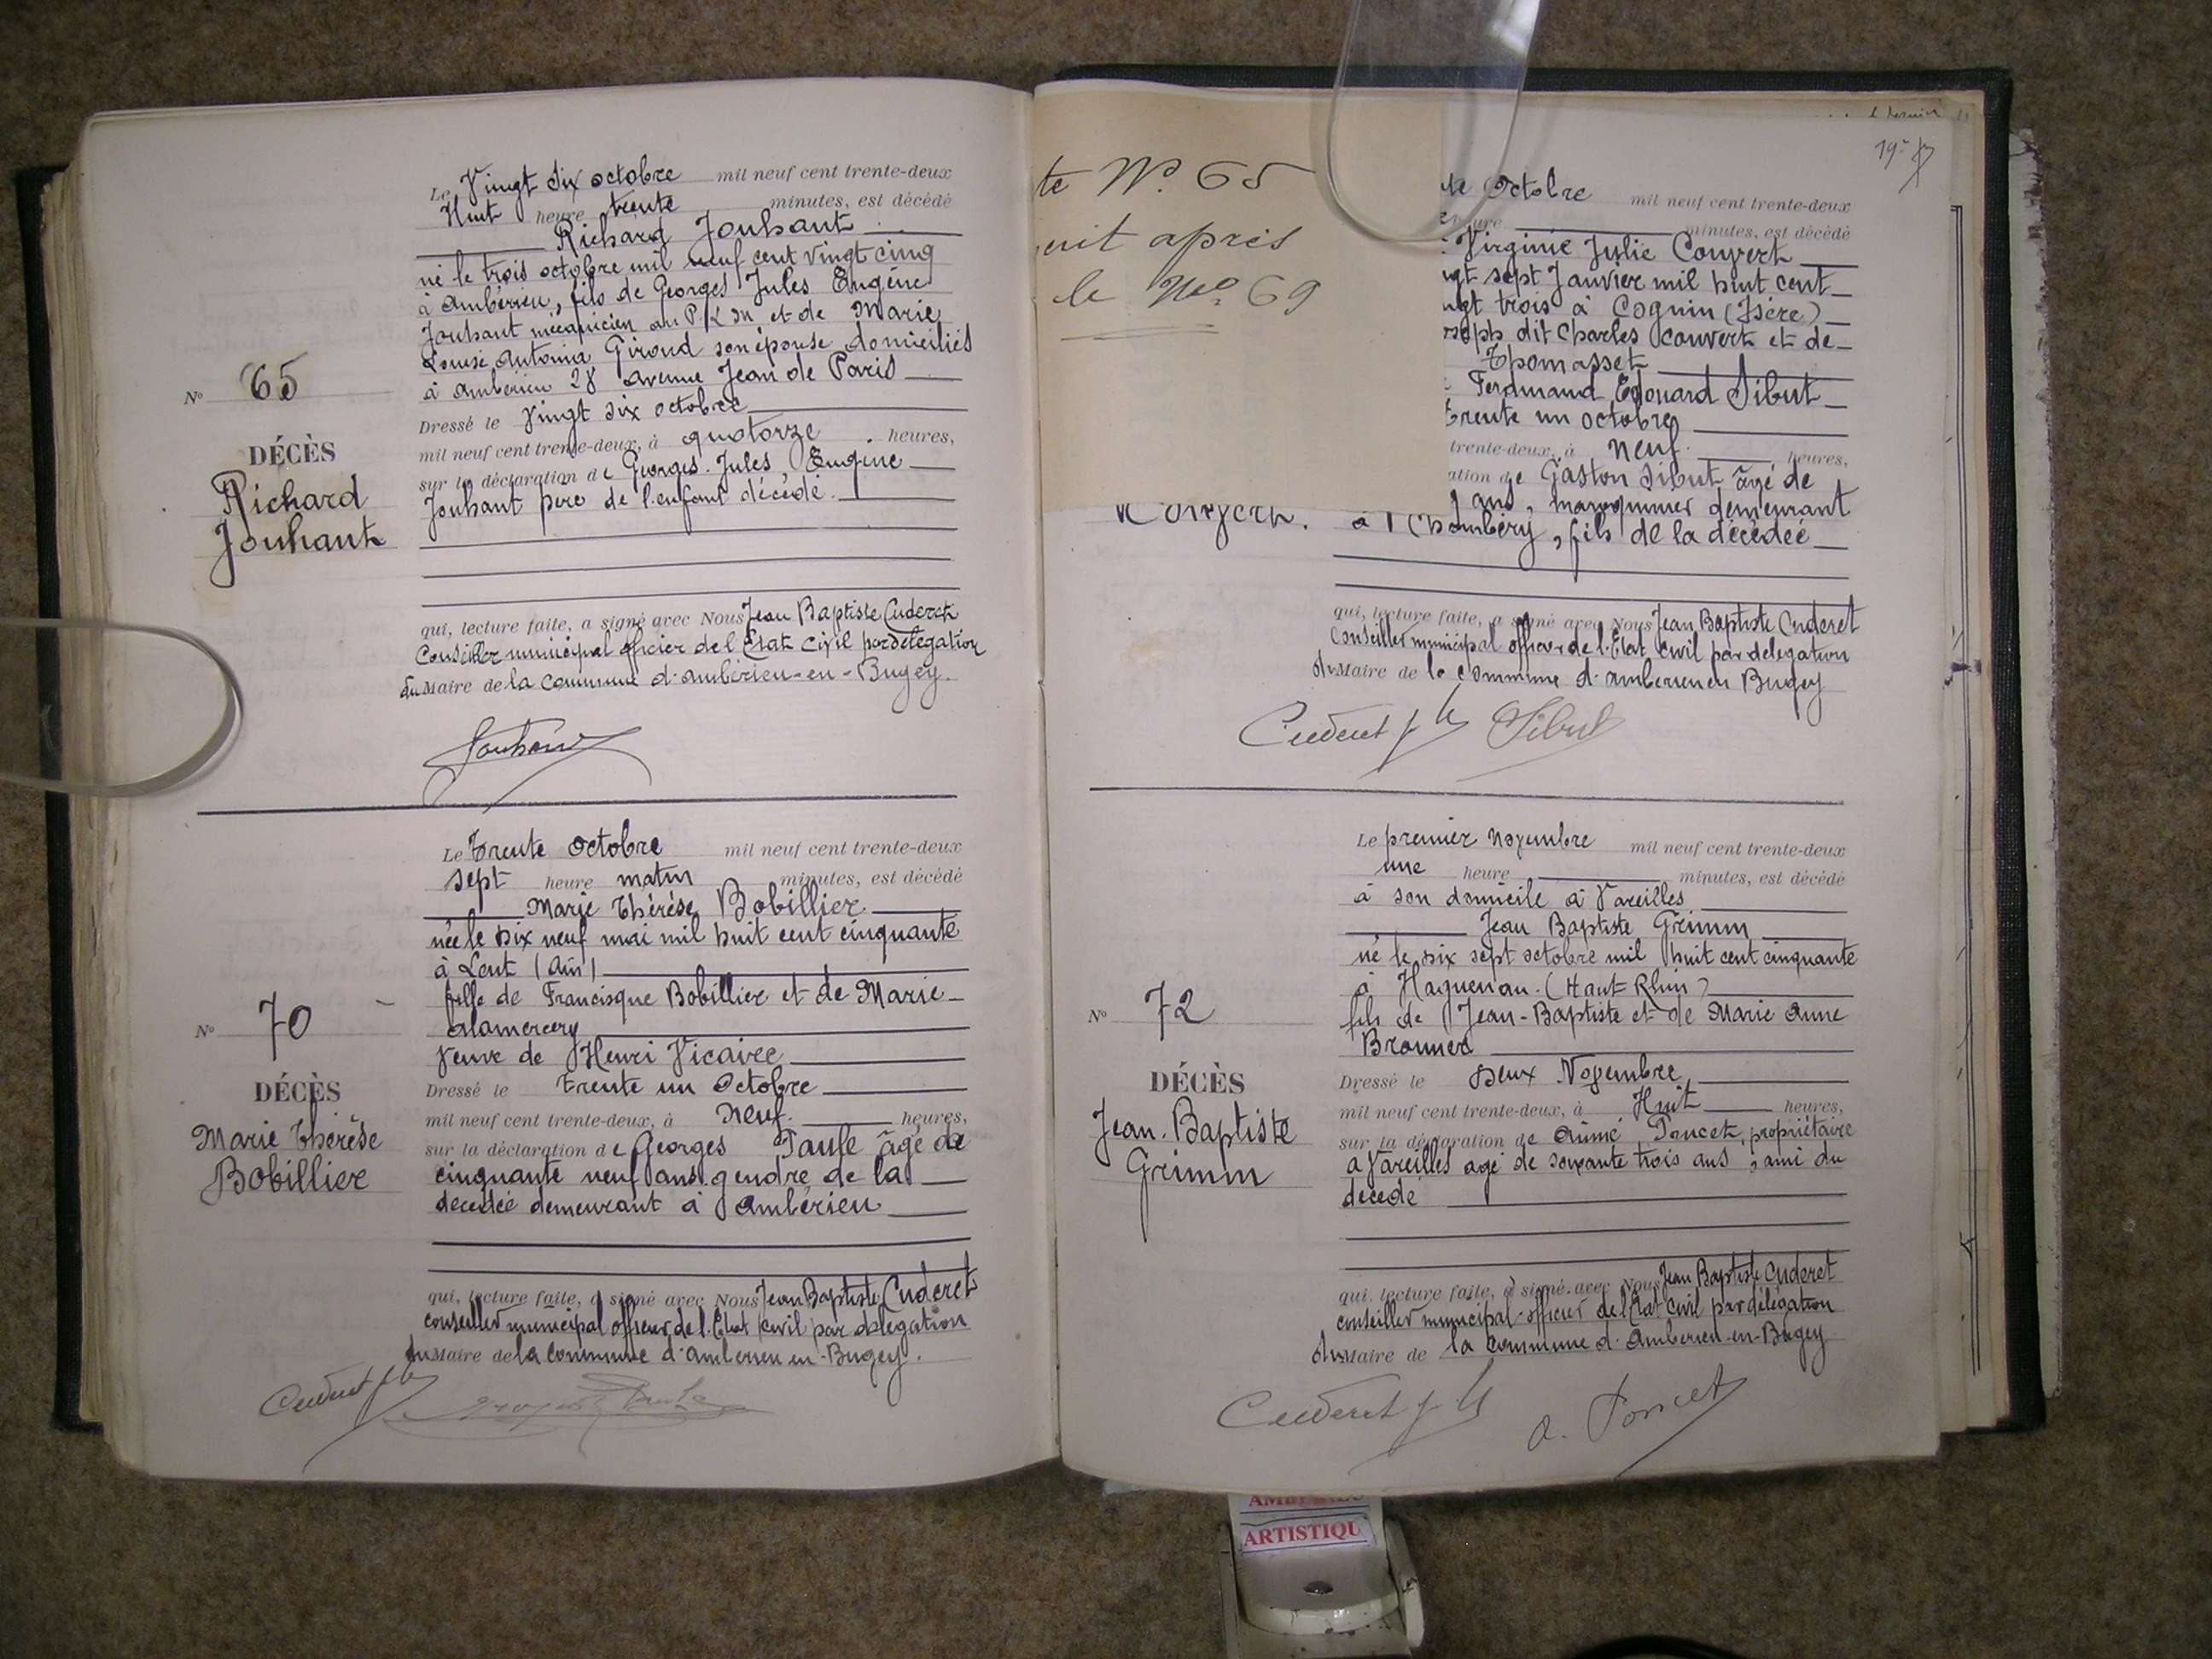 Le Vingt Six octobre mil neuf cent trente-deux
Huit heure trente minutes, est décédé
Richard Jouhant
né le trois octobre mil neuf cent vingt cinq
à Ambérieu, fils de Georges Jules Eugène
Jouhant mécanicien au P L M et de Marie
Louise Antonia Giroud son épouse domiciliés
à Ambérieu 28 avenue Jean de Paris
Dressé le Vingt six octobre
mil neuf cent trente-deux, à quatorze heures,
sur la déclaration de Georges Jules, Eugène
Jouhant père de l'enfant décédé.
N° 65
DÉCÈS
Richard
Jouhant
qui, lecture faite, a signé avec Nous Jean Baptiste Cuderet
Conseiller municipal officier de l'Etat Civil par délégation
du Maire de la Commune d'Ambérieu-en-Bugey.
Jouhant
Le Trente Octobre mil neuf cent trente-deux
sept heure matin minutes, est décédé
Marie Thérèse Bobillier
née le dix neuf mai mil huit cent cinquante
à Lent (Ain)
fille de Francisque Bobillier et de Marie
Alamercery
Veuve de Henri Vicaire
Dressé le trente un Octobre
mil neuf cent trente-deux, à Neuf heures,
sur la déclaration de Georges âgé de
cinquante neuf ans gendre de la
décédée demeurant à Ambérieu
N° 70
DÉCÈS
Marie Thérèse
Bobillier
qui, lecture faite, a signé avec Nous Jean Baptiste Cuderet
conseiller municipal officier de l'Etat Civil par délégation
du Maire de la Commune d'Ambérieu-en-Bugey.
Cuderet
te N° 65
le N° 69
après
19
Octobre mil neuf cent trente-deux
minutes, est décédé
Virginie Julie Couvert
sept Janvier mil huit cent
trois à Cognin (Isère)
dit Charles Couvert et de
Thomasset
Ferdinand Edouard Sibut
trente un octobre
trente-deux, à neuf heures,
ation de Gaston Sibut âgé de
ans, maroquinier demeurant
à Chambéry, fils de la décédée
qui, lecture faite, a signé avec Nous Jean Baptiste Cuderet
Conseiller municipal officier de l'Etat Civil par délégation
du Maire de la Commune d'Ambérieu en Bugey
Cuderet Sibut
Le premier Novembre mil neuf cent trente-deux
une heure minutes, est décédé
à son domicile à Vareilles
Jean Baptiste Grimm
né le dix sept octobre mil huit cent cinquante
à Haguenau (Haut-Rhin)
fils de Jean-Baptiste et de Marie Anne
Bronner
Dressé le Deux Novembre
mil neuf cent trente-deux, à Huit heures,
sur la déclaration de Aimé Poncet, propriétaire
à Vareilles agé de soixante trois ans, ami du
décédé
N° 72
DÉCÈS
Jean-Baptiste
Grimm
qui, lecture faite, a signé avec Nous Jean Baptiste Cuderet
conseiller municipal officier de l'Etat Civil par délégation
du Maire de la Commune d'Ambérieu-en-Bugey
Cuderet A. Poncet
ARTISTIQU